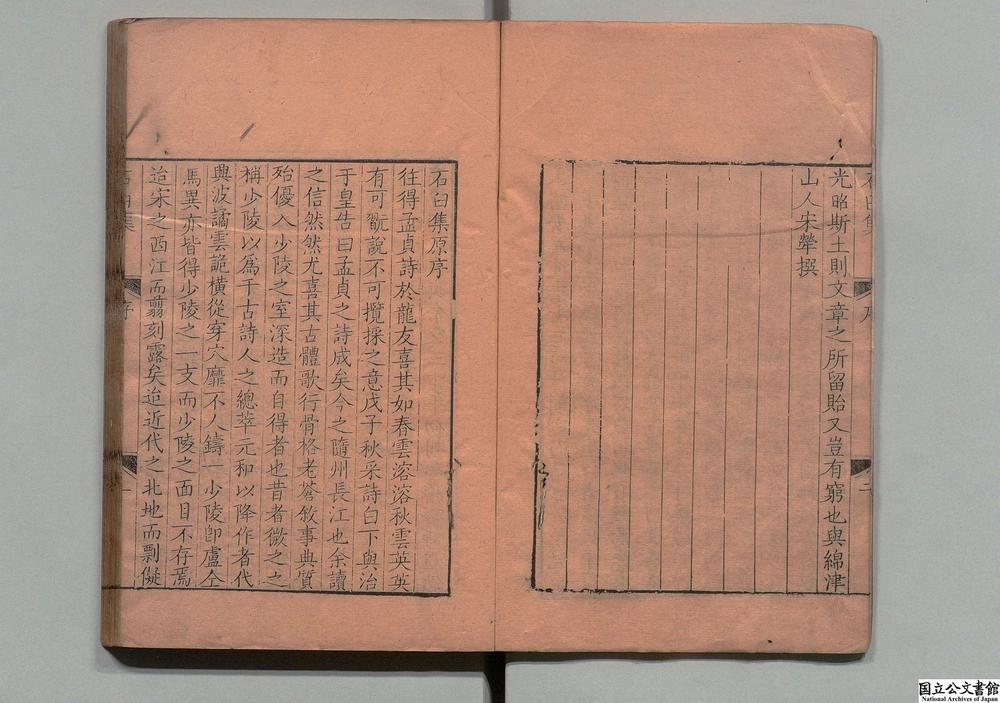 光昭斯土則文章之所留貽又豈有窮也與綿津
山人宋犖撰
石臼集原序
往得孟貞詩於龍友喜其如春雲溶溶秋雲英英
有可翫說不可攬採之意戊子秋采詩白下與治
于皇告曰孟貞之詩成矣今之隨州長江也余讀
之信然然尤喜其古體歌行骨格老蒼敘事典質
殆優入少陵之室深造而自得者也昔者微之之
稱少陵以為千古詩人之總萃元和以降作者代
興波譎雲詭橫從穿穴靡不人鑄一少陵卽盧仝
馬異亦皆得少陵之一支而少陵之面目不存焉
迨宋之西江而翦刻露矣迨近代之北地而剽儗
国立公文書館
National Archives of Japan